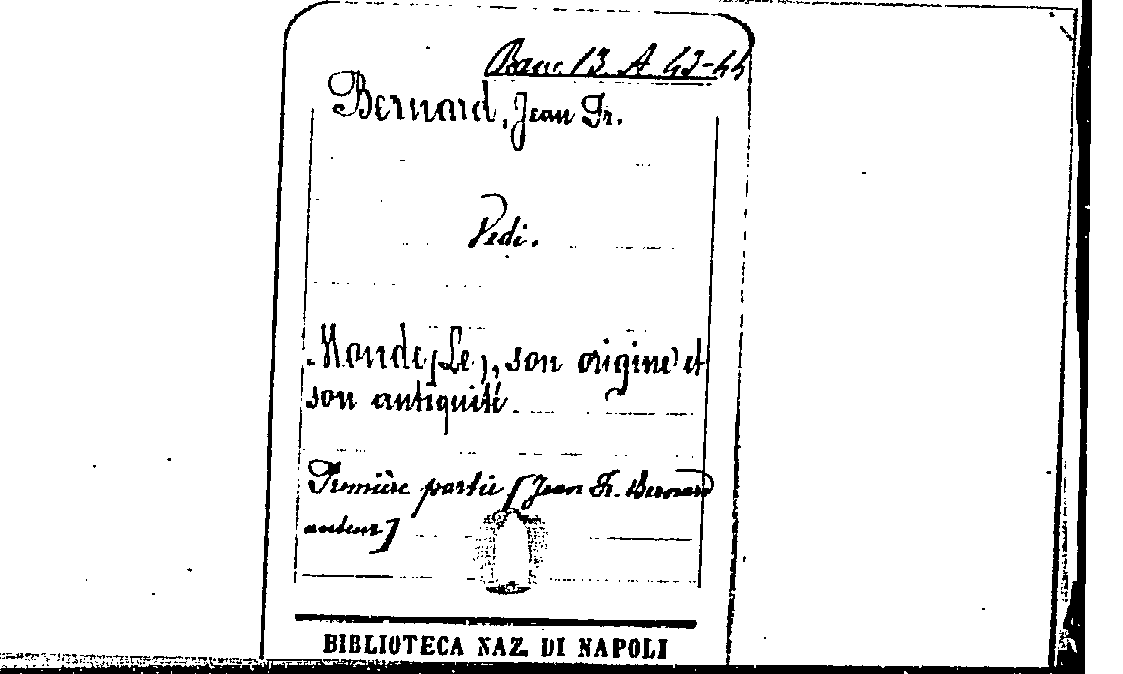 Banc. 13. A 43-44
Bernard, Jean Fr.
Vedi.
Monde (Le), son origine et
son antiquité
Première partie [Jean Fr. Bernard
auteur]
BIBLIOTECA NAZ. DI NAPOLI